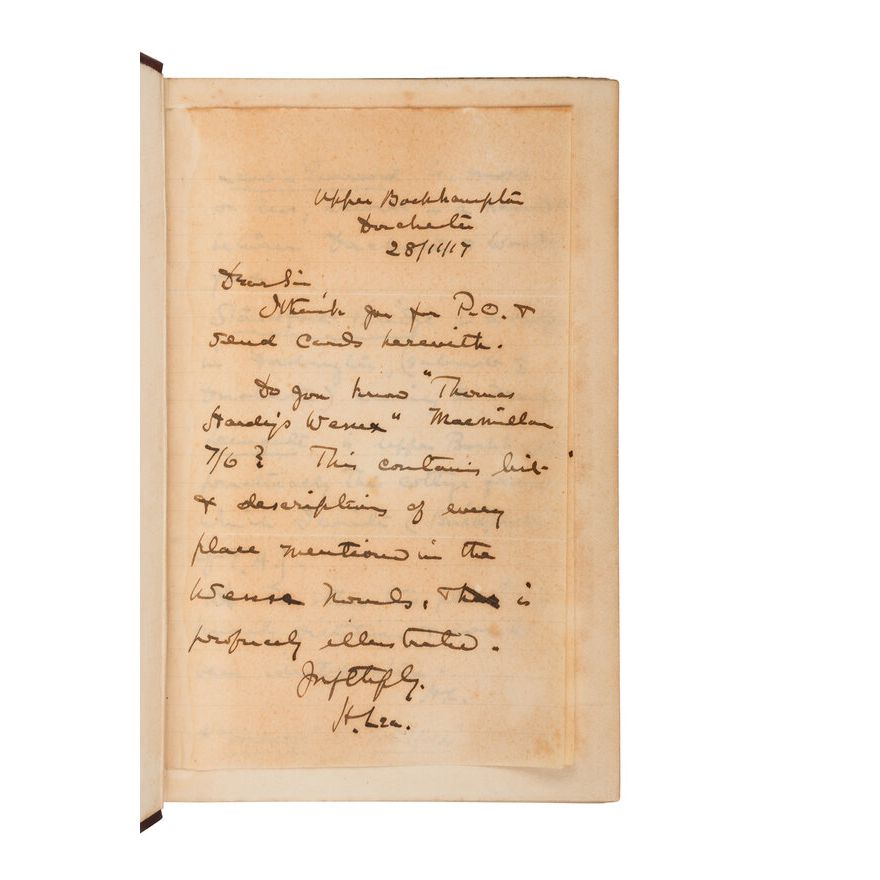 Upper Bockhampton
Dorchester
28/11/17
Dear Sir
I thank you for P.O. &
send cards herewith.
Do you know "Thomas
Hardy's Wessex" Macmillan
7/6? This contains list
& descriptions of every
place mentioned in the
Wessex Novels, & is
profusely illustrated.
H. Lea.